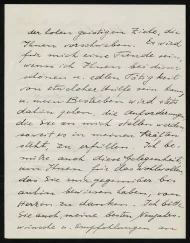 der hohen geistigen Ziele, die
Ihnen vorschweben. Es wird
für mich eine Freude sein,
wenn ich Ihnen bei dieser
schönen u. edlen Tätigkeit
von etwelcher Hilfe sein kann
u. mein Bestreben wird stets
dahin gehen, die Anforderungen
die Sie an mich stellen werden,
soweit es in meinen Kräften
steht, zu erfüllen. Ich be-
nütze auch diese Gelegenheit,
um Ihnen für das Wohlwollen,
das Sie mir gegenüber bis
anhin bewiesen haben, von
Herzen zu danken. Ich bitte
Sie auch, meine besten Neujahrs-
wünsche u. Empfehlungen an